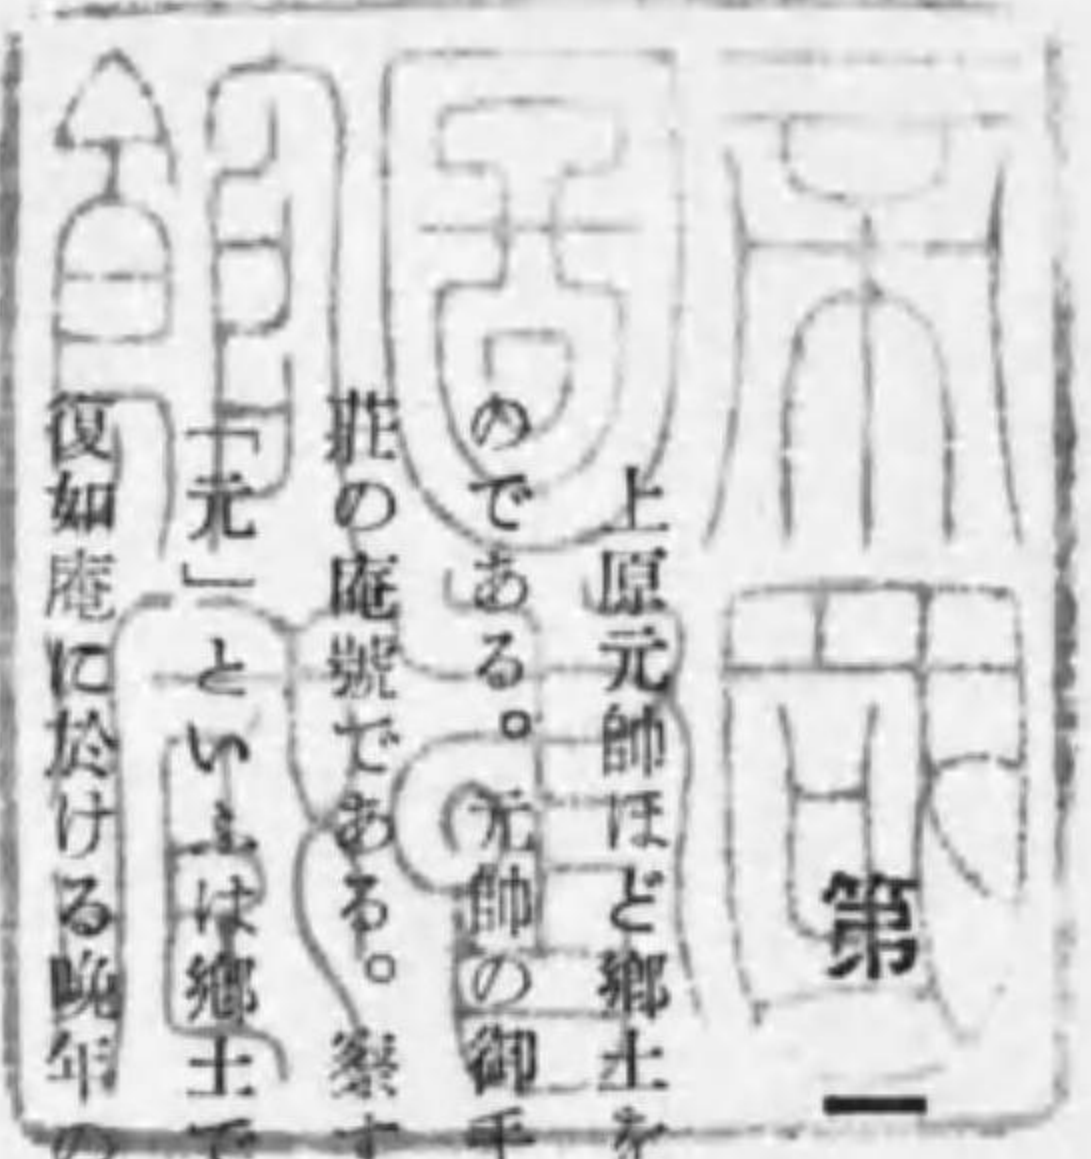 帝國圖書館藏
第一
上原元帥ほど鄕土を
のである。元帥の御
莊の庵號である。察す
「元」といふは鄕土で
復如庵に於ける晩年の